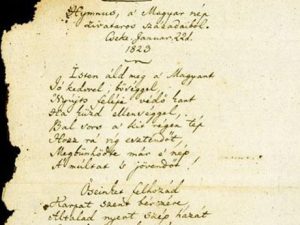 Hymnus, a' Magyar nép
zivataros századaiból.
Cseke. Januar. 22d.
1823
Isten áld meg a' Magyart
Jó kedvvel, bőséggel,
Nyújts feléje védő kart
Ha küzd ellenséggel,
Bal sors a' kit régen tép
Hozz rá víg esztendőt,
Megbünhödte már e' nép
A' multat 's jövendőt!
Őseinket felhozád
Kárpát szent bérczére,
Általad nyert szép hazát